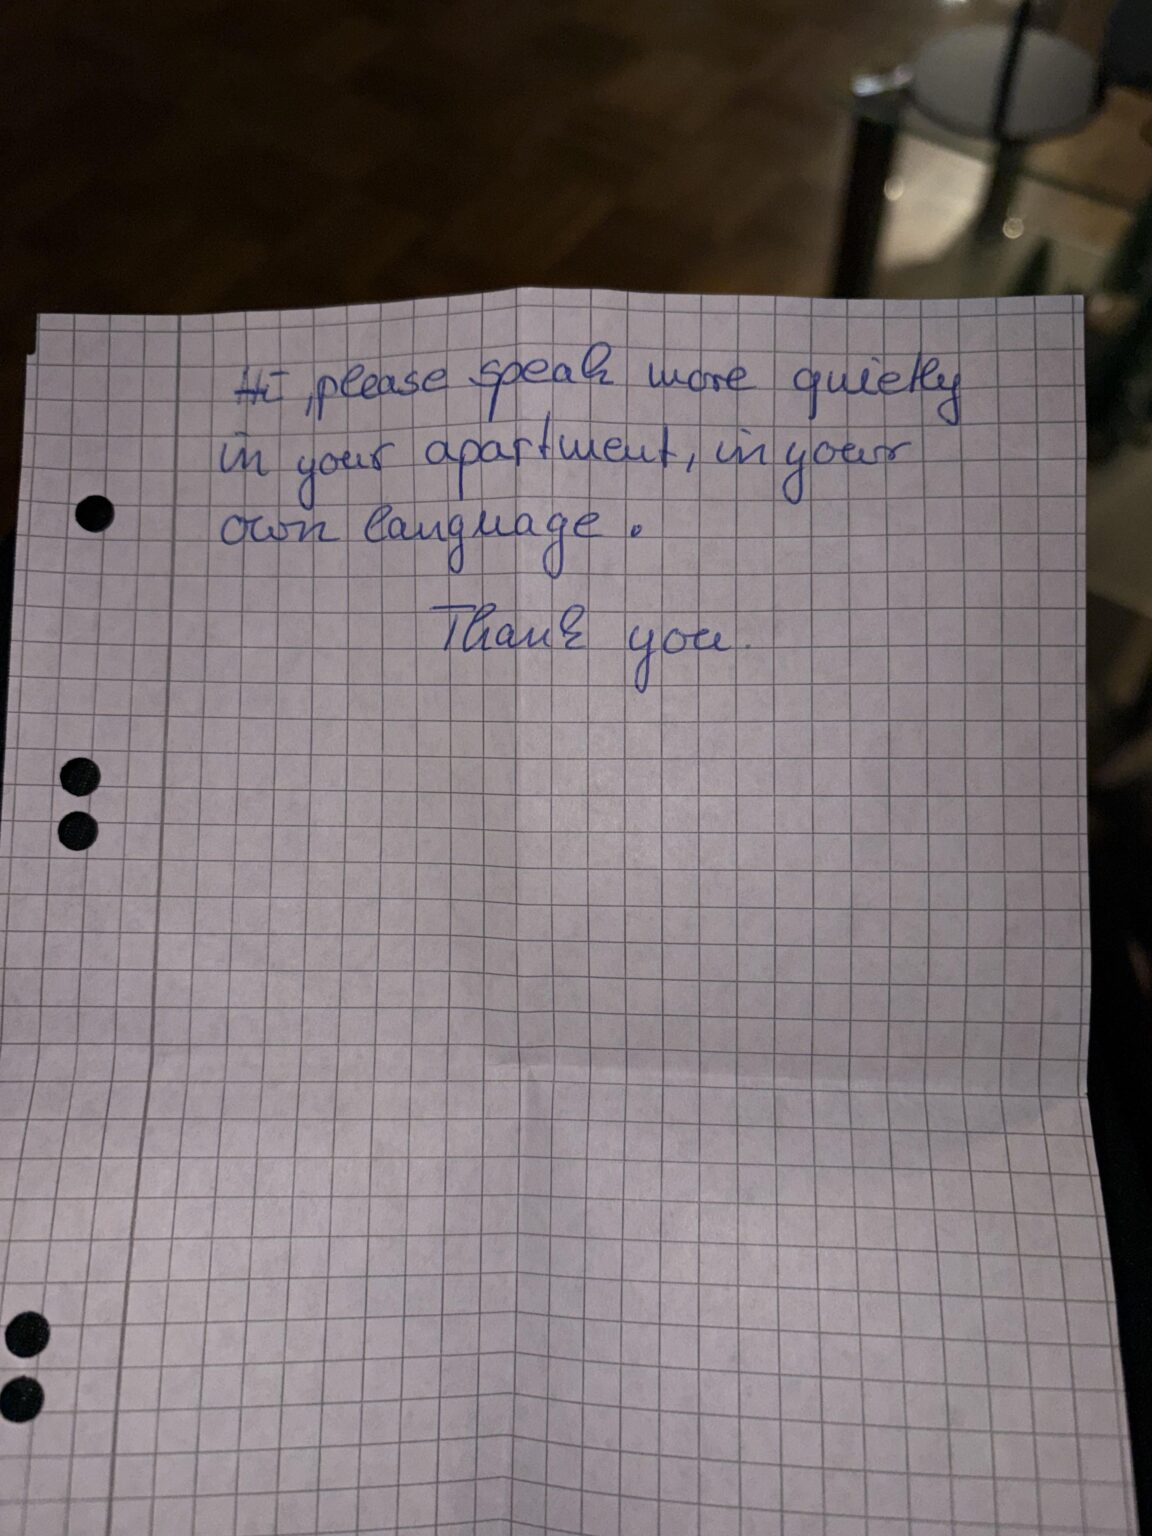 Hi, please speak more quietly
in your apartment, in your
own language.
Thank you.